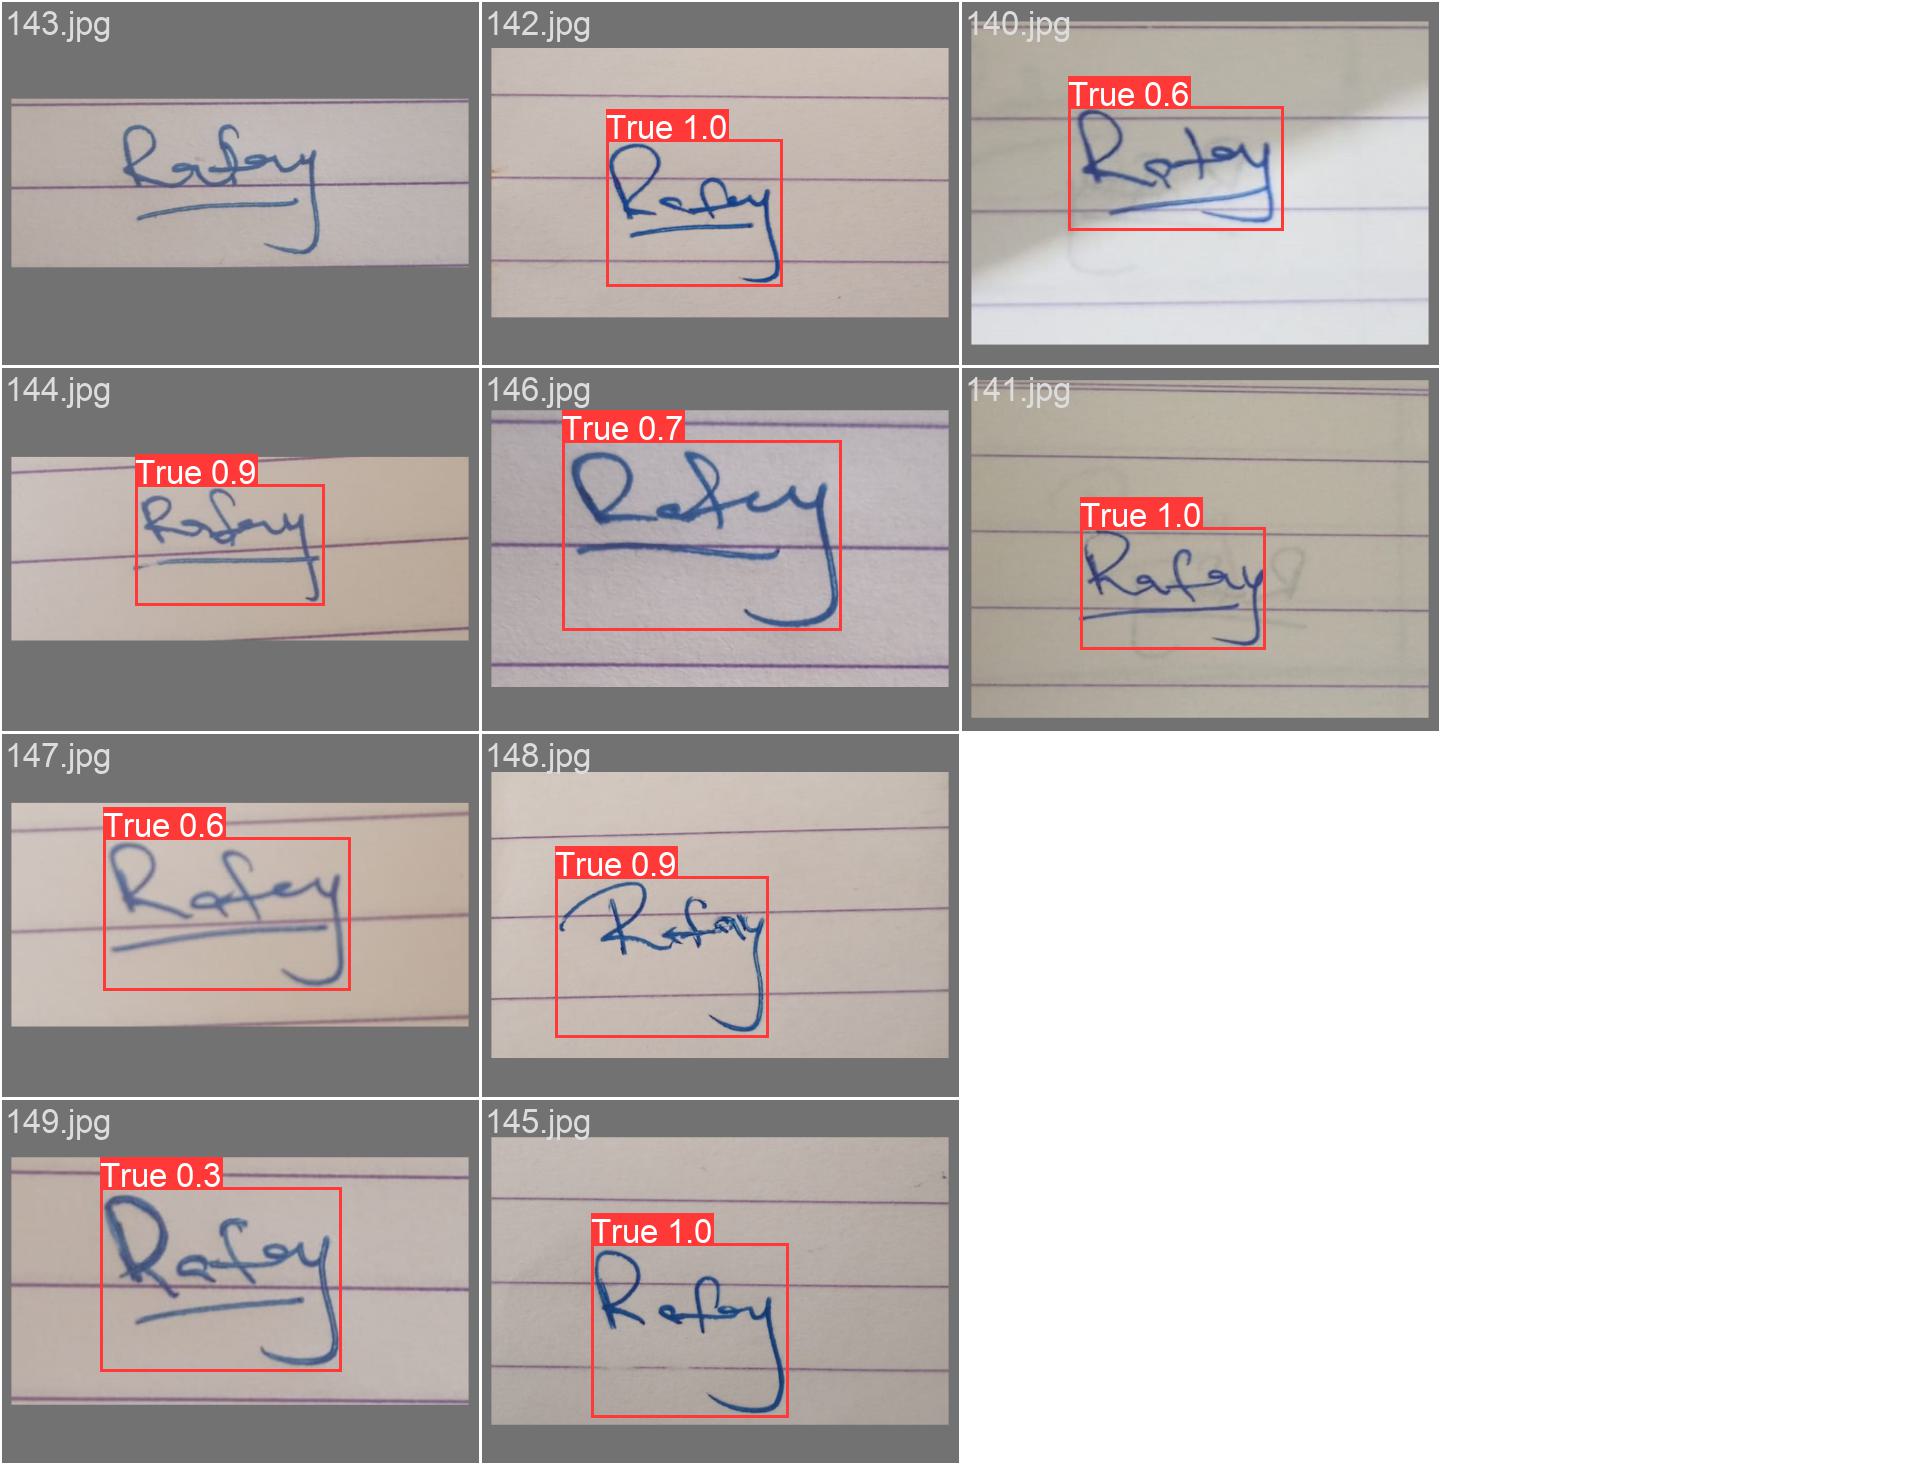 143.jpg
Rafay
142.jpg
True 1.0
Rafay
140.jpg
True 0.6
Rafay
144.jpg
True 0.9
Rafay
146.jpg
True 0.7
Rafay
141.jpg
True 1.0
Rafay
147.jpg
True 0.6
Rafay
148.jpg
True 0.9
Rafay
149.jpg
True 0.3
Rafay
145.jpg
True 1.0
Rafay